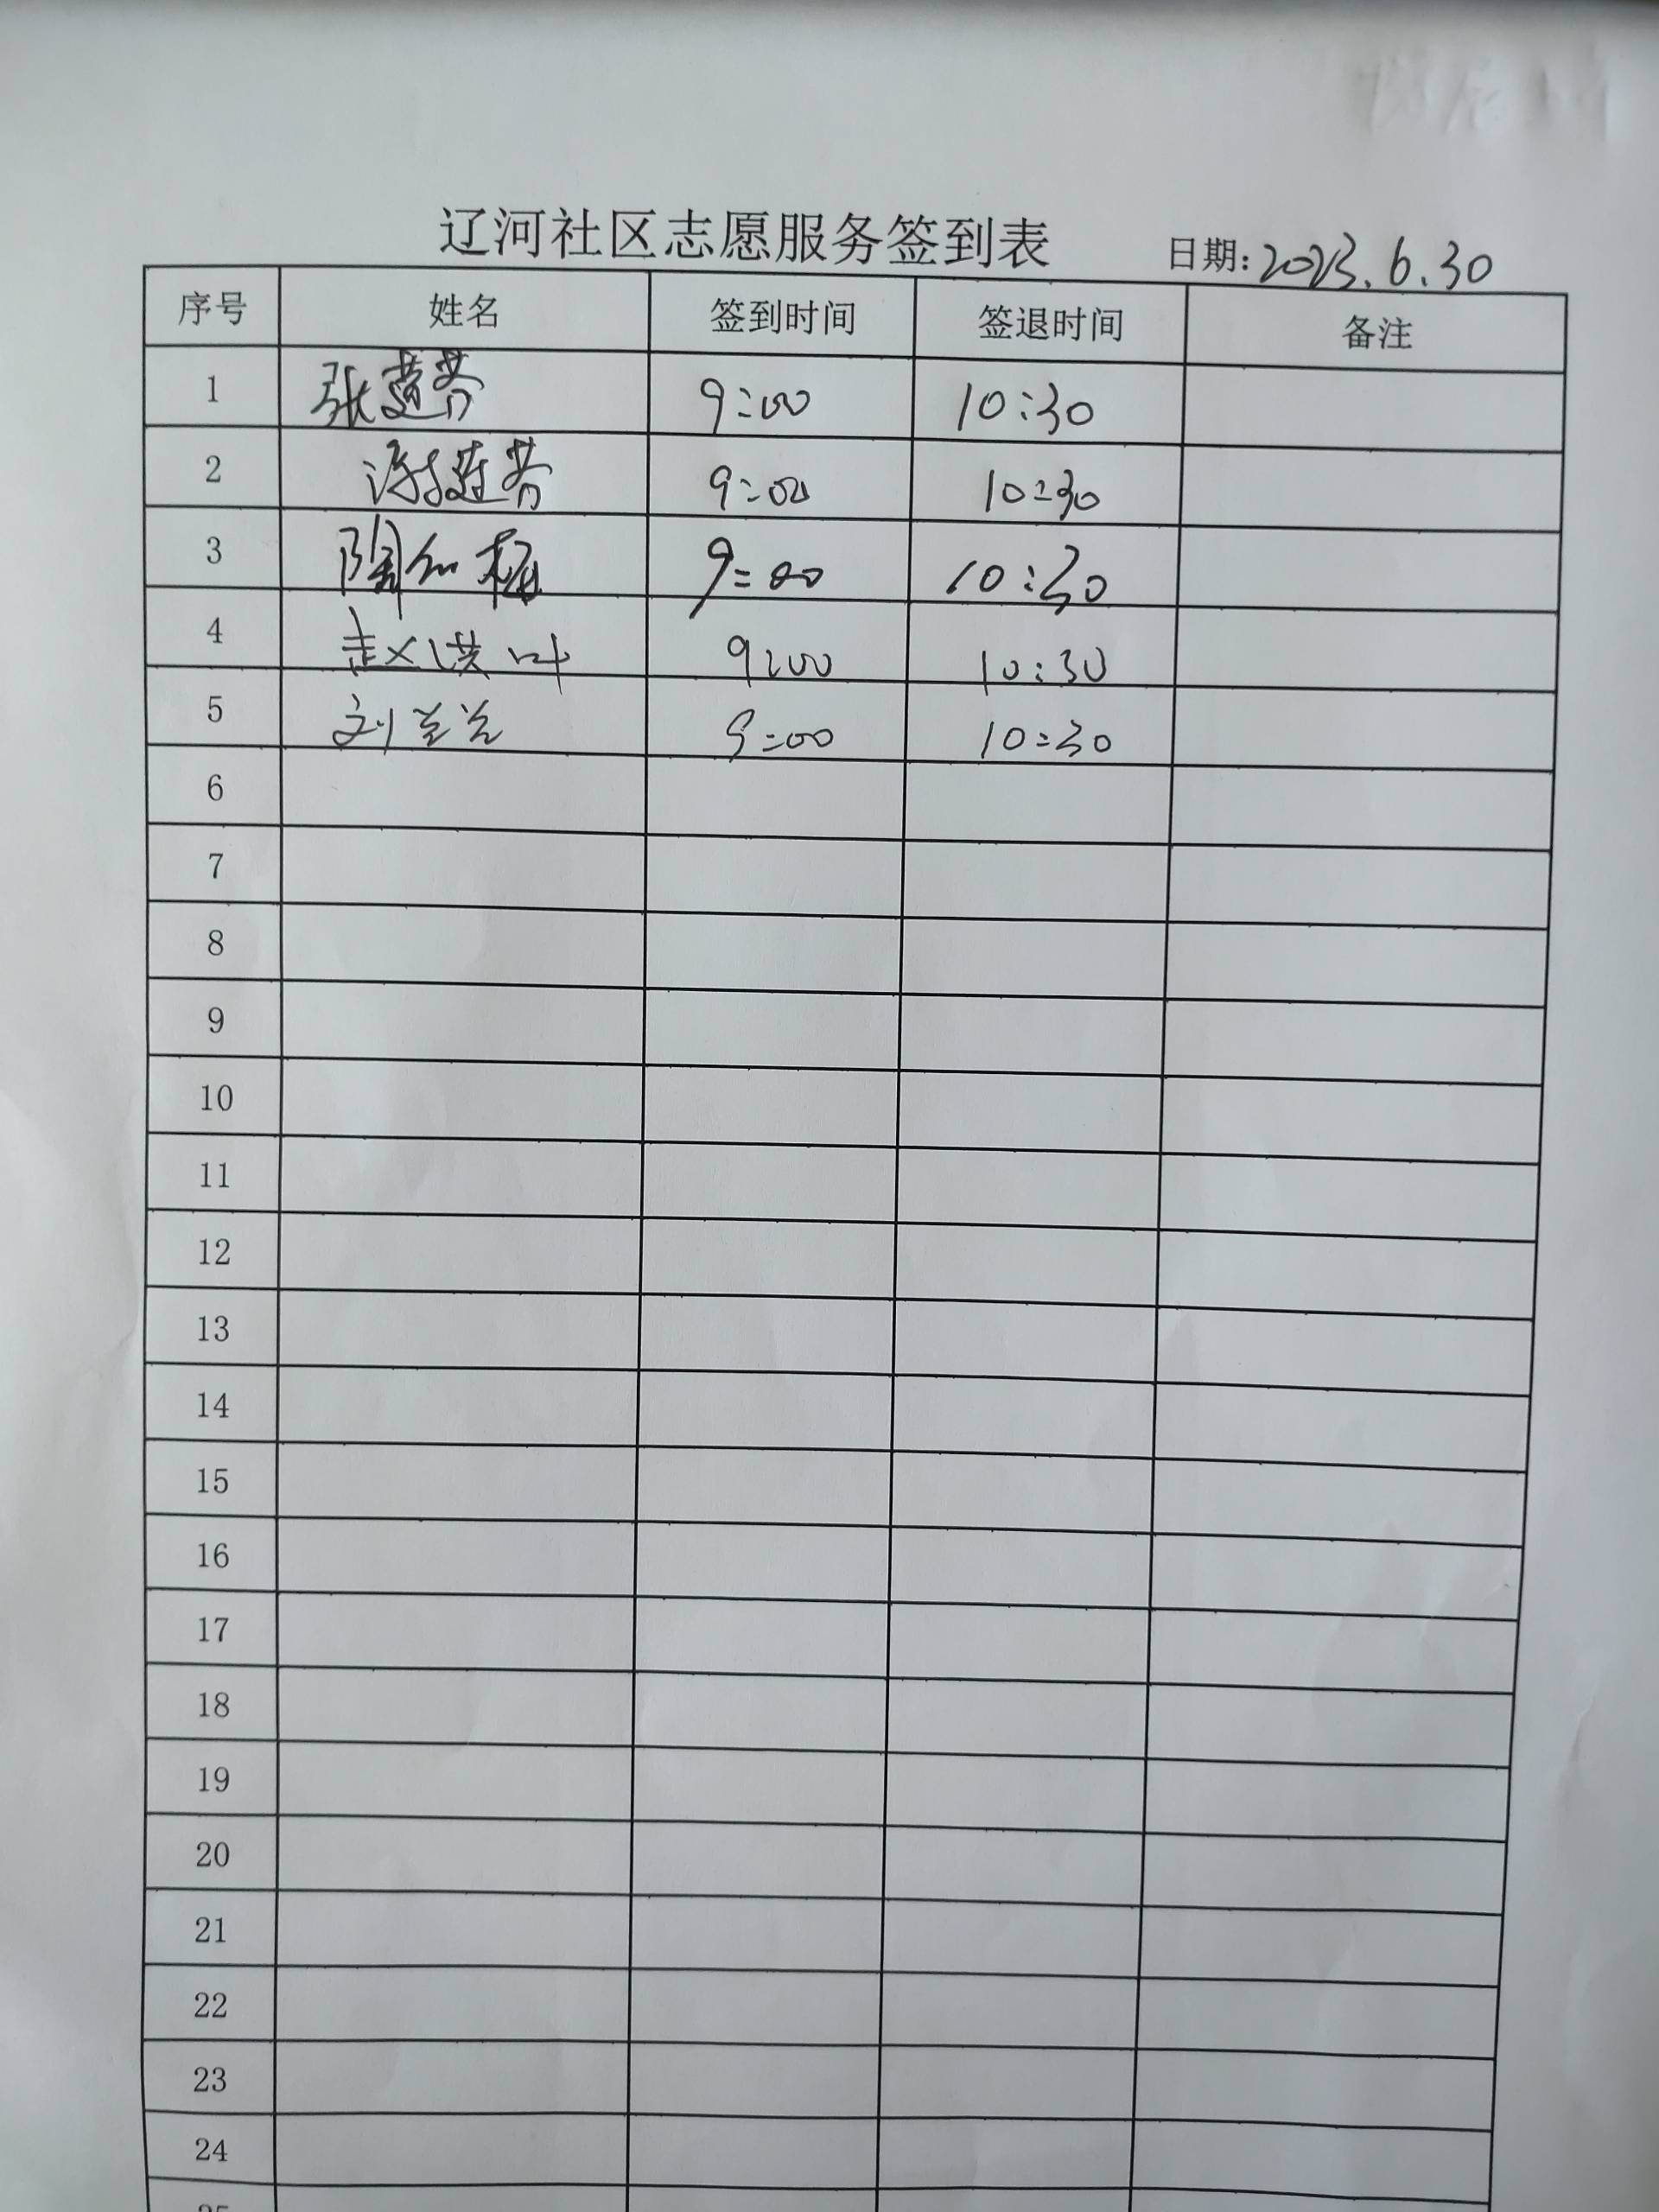 辽河社区志愿服务签到表 日期:2023.6.30
序号 姓名 签到时间 签退时间 备注
1 张莲芳 9:00 10:30
2 谢莲芳 9:00 10:30
3 陶仙 9:00 10:30
4 赵洪叶 9:00 10:30
5 刘兰兰 9:00 10:30
6
7
8
9
10
11
12
13
14
15
16
17
18
19
20
21
22
23
24